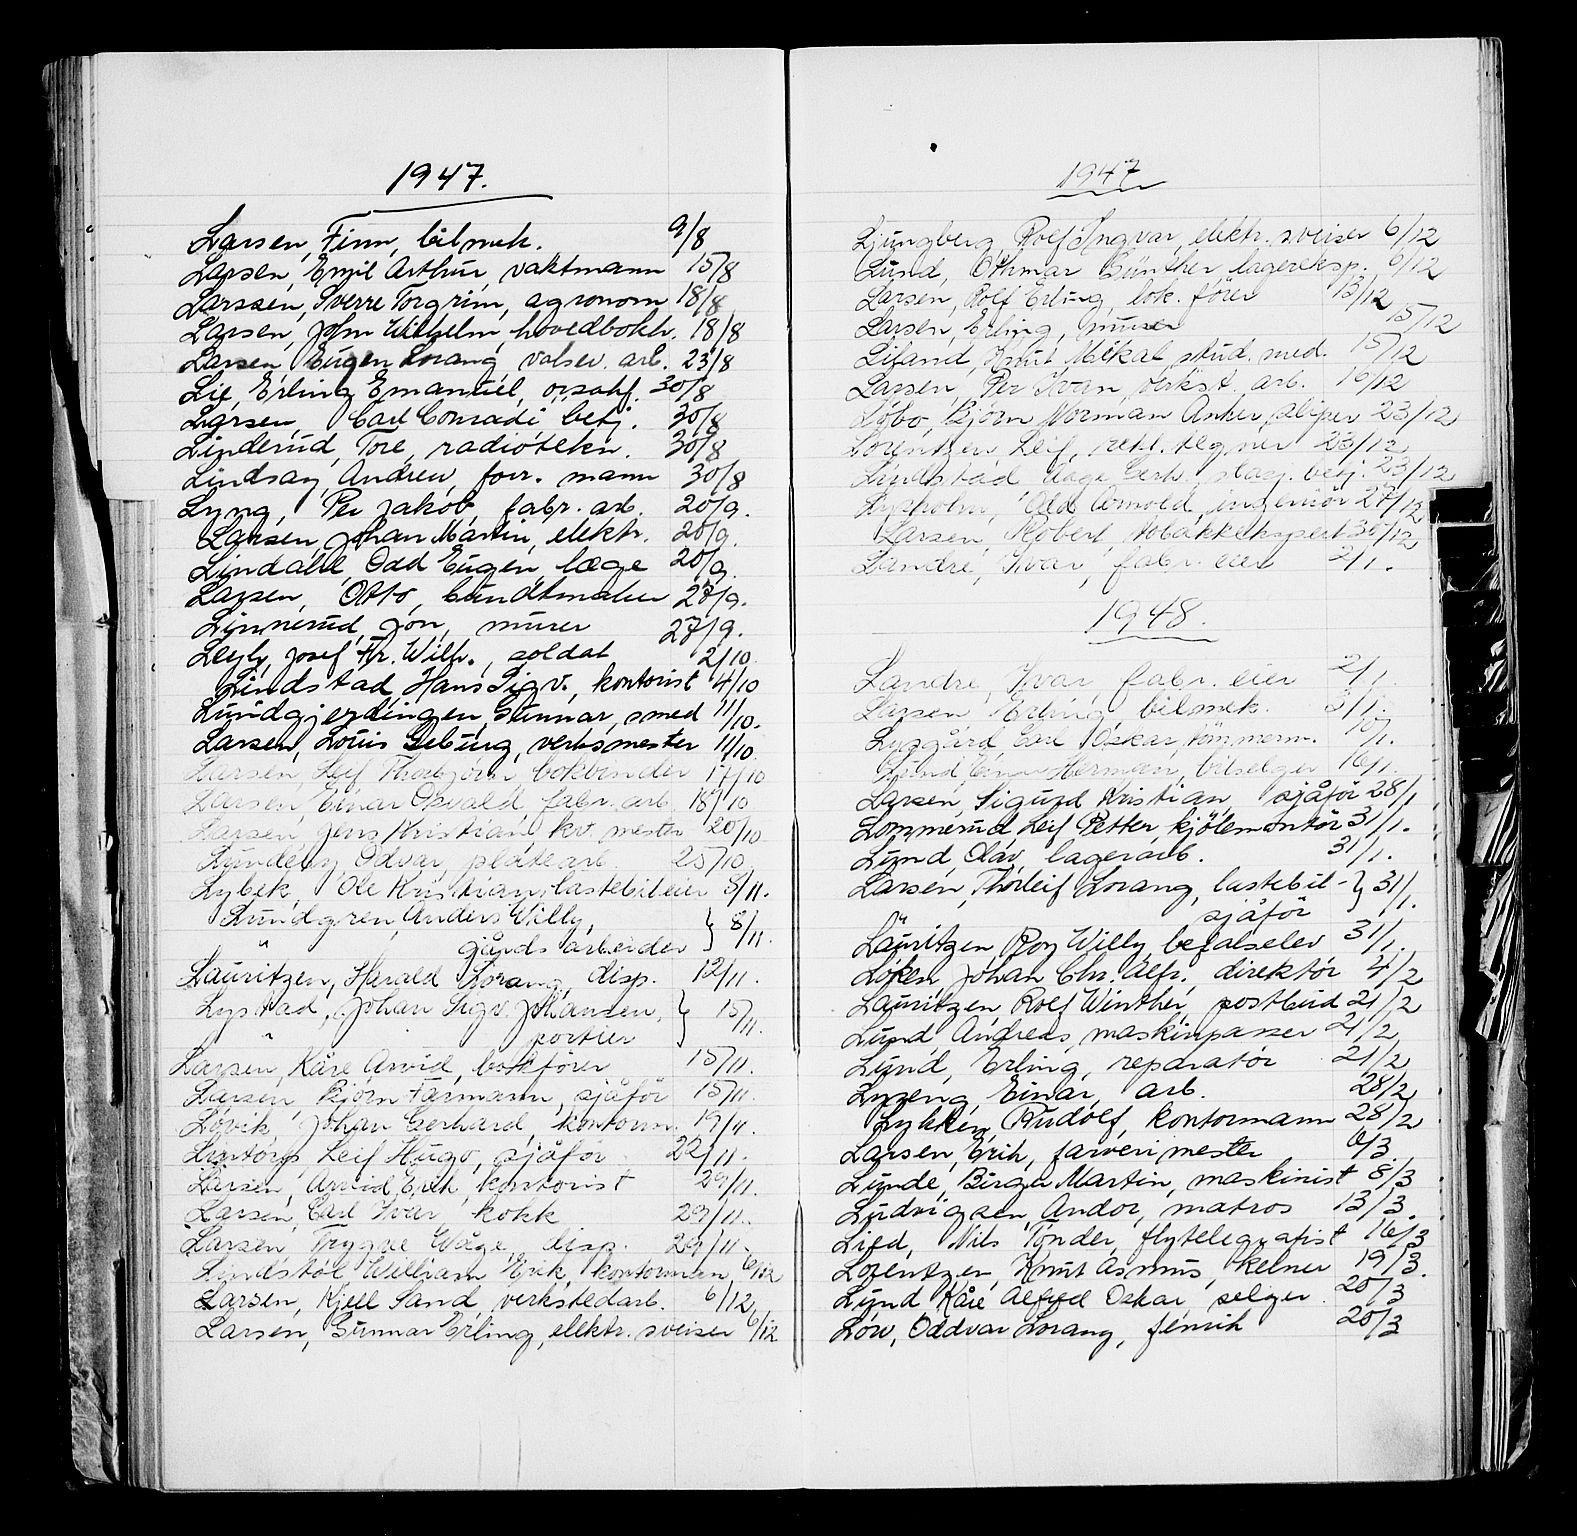 1947.
Larsen, Finn, bilmek. 9/8
Larsen, Emil Arthur, vaktmann 15/8
Larssen, Sverre Torgrim, agronom 18/8
Larsen, John Wilhelm, hovedbokh. 18/8
Larsen, Eugen Lorang, valsev. arb. 23/8
Lie, Erling Emanuel, 30/8
Larsen, Carl Conradi betj. 30/8
Linderud, Tore, radiotekn. 30/8
Lindsay, Andrew, forr. mann 30/8
Lyng, Per Jakob, fabr. arb. 20/9.
Larsen, Johan Martin, elektr. 20/9.
Lindahl, Odd Eugen, læge 20/9
Larsen, Otto, bundtmaker 27/9.
Linnerud, Jon, murer 27/9.
Josef Fr. Wilh., soldat 2/10.
Lindstad, Hans Sigv., kontorist 4/10
Lundgjerdingen, Gunnar, smed 11/10.
Larsen, Louis Gebürg, verksmester 11/10.
Larsen, Leif Thorbjørn, bokbinder 17/10
Larsen, Einar Osvald, fabr. arb. 18/10
Larsen, Jens Kristian, kv. mester 20/10
Odvar, platearb. 25/10
Lybek, Ole Kristian, lastebileier 8/11.
Lundgren, Anders Willy, } 8/11.
" gårdsarbeider
Lauritzen, Harald Lorang, disp. 12/11.
Lystad, Johan Sigv. Johansen, } 15/11.
" portier
Larsen, Kåre Arvid, bokfører 15/11.
Larsen, Bjørn Farmann, sjåför 15/11.
Løvik, Johan Gerhard, kontorm. 19/11.
Leif Hugo, sjåför 22/11.
Larsen, Arvid Erik, kontorist 29/11.
Larsen, Carl Ivar, kokk 29/11.
Larsen, Trygve Wåge, disp. 29/11.
Lindstøl, William Erik, kontormann, 6/12
Larsen, Kjell Sand, verkstedarb. 6/12
Larsen, Gunnar Erling, elektr. sveiser 6/12
1947
Ljungberg, Rolf Ingvar, elektr. sveiser 6/12
Lund, Othmar Günther, lagereksp. 6/12
Larsen, Rolf Erling, lok. förer 13/12
Larsen, Erling, murer 15/12
Lifand, Knut Mikal, stud. med. 15/12
Larsen, Per Ivan, verkst. arb. 16/12
Løbo, Bjørn Norman Anker, sliper 23/12
Lorentzen, Leif, rekl. tegner 23/12
Lindstad, Aage Gerh., betj. 23/12
Lysholm, Odd Arnold, ingeniør 27/12
Larsen, Robert, tobakkekspert 30/12
Landre, Ivar, fabr. eier 2/1.
1948.
Landre, Ivar, fabr. eier 2/1.
Larsen, Erling, bilmek. 3/1.
Lyggård, Carl Oskar, tömmerm. 10/1.
Lund, Einar Herman, bilselger 16/1.
Larsen, Sigurd Kristian, sjåför 28/1
Lommerud, Leif Petter, kjölemontör 31/1.
Lund, Olav, lagerarb. 31/1.
Larsen, Thorleif Lorang, lastebil- } 31/1.
" sjåför
Lauritzen, Roy Willy, befalselev 31/1.
Løken, Johan Chr. Alfr., direktör 4/2
Lauritzen, Rolf Winther, postbud 21/2
Lund, Andreas, maskinpasser 21/2
Lund, Erling, reparatör 21/2
Lyseng, Einar, arb. 28/2
Lykken, Rudolf, kontormann 28/2
Larsen, Erik, farverimester 6/3
Lunde, Birger Martin, maskinist 8/3
Ludvigsen, Andor, matros 13/3.
Lied, Nils Tønder, flytelegrafist 16/3
Lorentzen, Knut Asmus, kelner 19/3.
Lund, Kåre Alfred Oskar, selger 20/3
Löw, Oddvar Lorang, fenrik 20/3